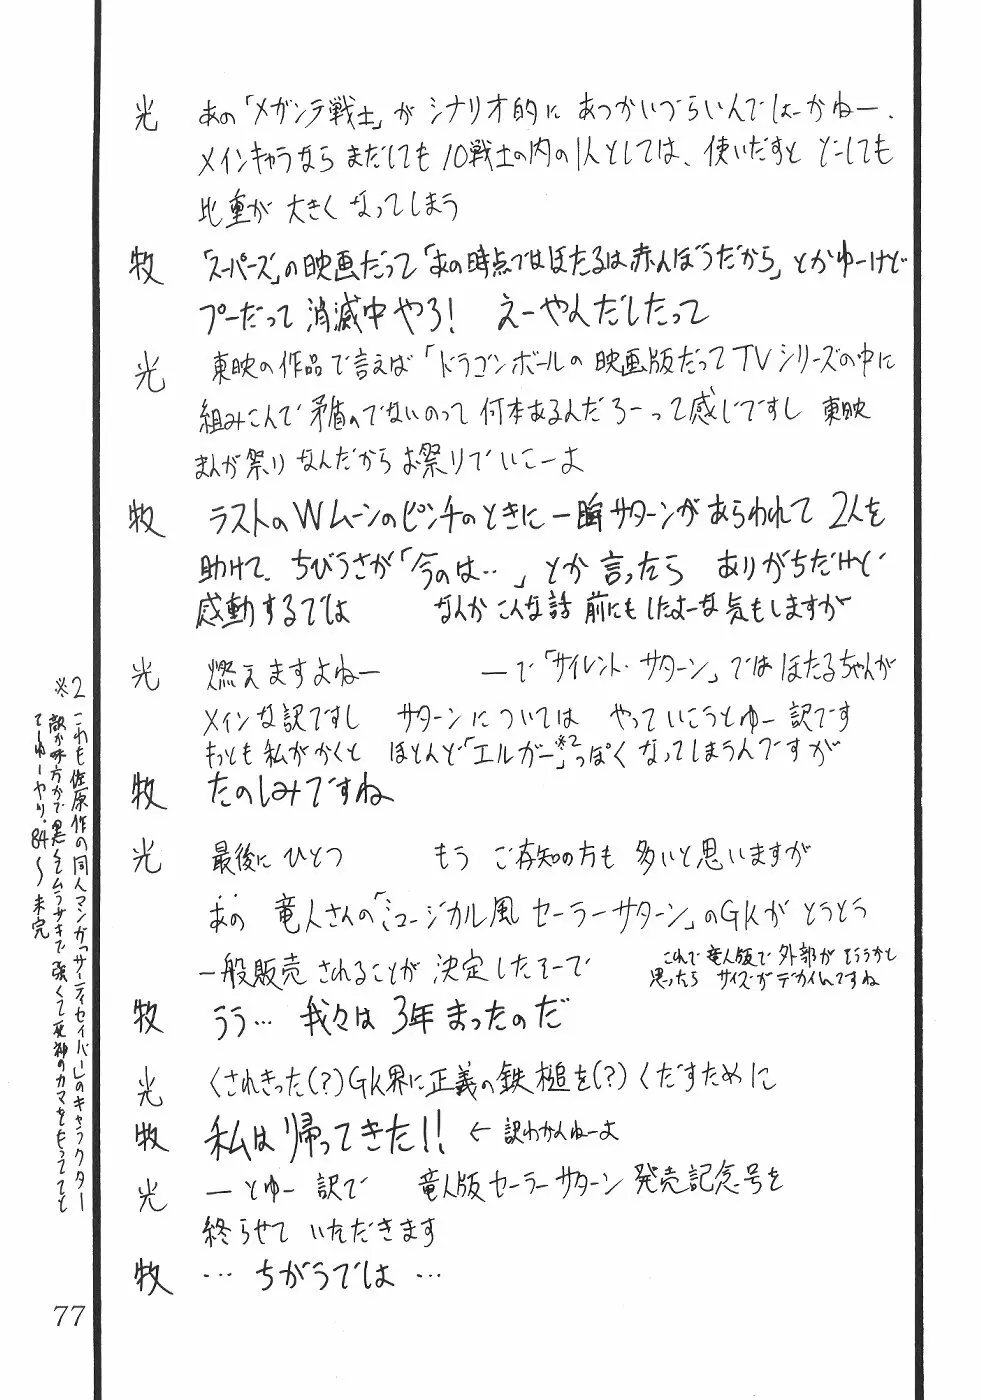 光 あの「メガンテ戦士」が シナリオ的に あつかいづらいんでしょーかねー、
メインキャラなら まだしても 10戦士の内の1人としては、使いだすと どーしても
比重が 大きく なってしまう
牧 「スーパーズ」の映画だって「あの時点ではほたるは赤んぼうだから」とかゆーけど
プーだって 消滅中やろ! えーやんだしたって
光 東映の作品で言えば「ドラゴンボールの映画版だってTVシリーズの中に
組みこんで 矛盾のでないのって 何本あるんだろーって感じですし 東映
まんが祭り なんだから お祭りでいこーよ
牧 ラストのWムーンのピンチのときに 一瞬サターンがあらわれて 2人を
助けて、ちびうさが「今のは‥」とか 言ったら ありがちだけど
感動するでは なんか こんな話 前にもしたよーな気もしますが
光 燃えますよねー ーで「サイレント・サターン」では ほたるちゃんが
メインな訳ですし サターンについては やっていこうとゆー訳です
もっとも私がかくと ほとんど「エルガー」※2っぽく なってしまうんですが
牧 たのしみですね
光 最後に ひとつ もう ご存知の方も 多いと思いますが
あの 竜人さんの「ミュージカル風 セーラーサターン」のGKが とうとう
一般販売 されることが 決定したそーで これで 竜人版で 外部が そろうかと
思ったら サイズが デカイんですね
牧 うう… 我々は 3年まったのだ
光 くされきった(?)GK界に正義の鉄槌を(?) くだすために
牧 私は 帰ってきた!! ← 訳わかんねーよ
光 ーとゆー 訳で 竜人版セーラーサターン 発売記念号を
終らせて いただきます
牧 … ちがうでは …
※2 これも佐原作の同人マンガ「サイティセイバー」のキャラクター
敵か味方かで黒くてムラサキで強くて死神のカマをもってると
てーゆーヤツ。84〜未完
77